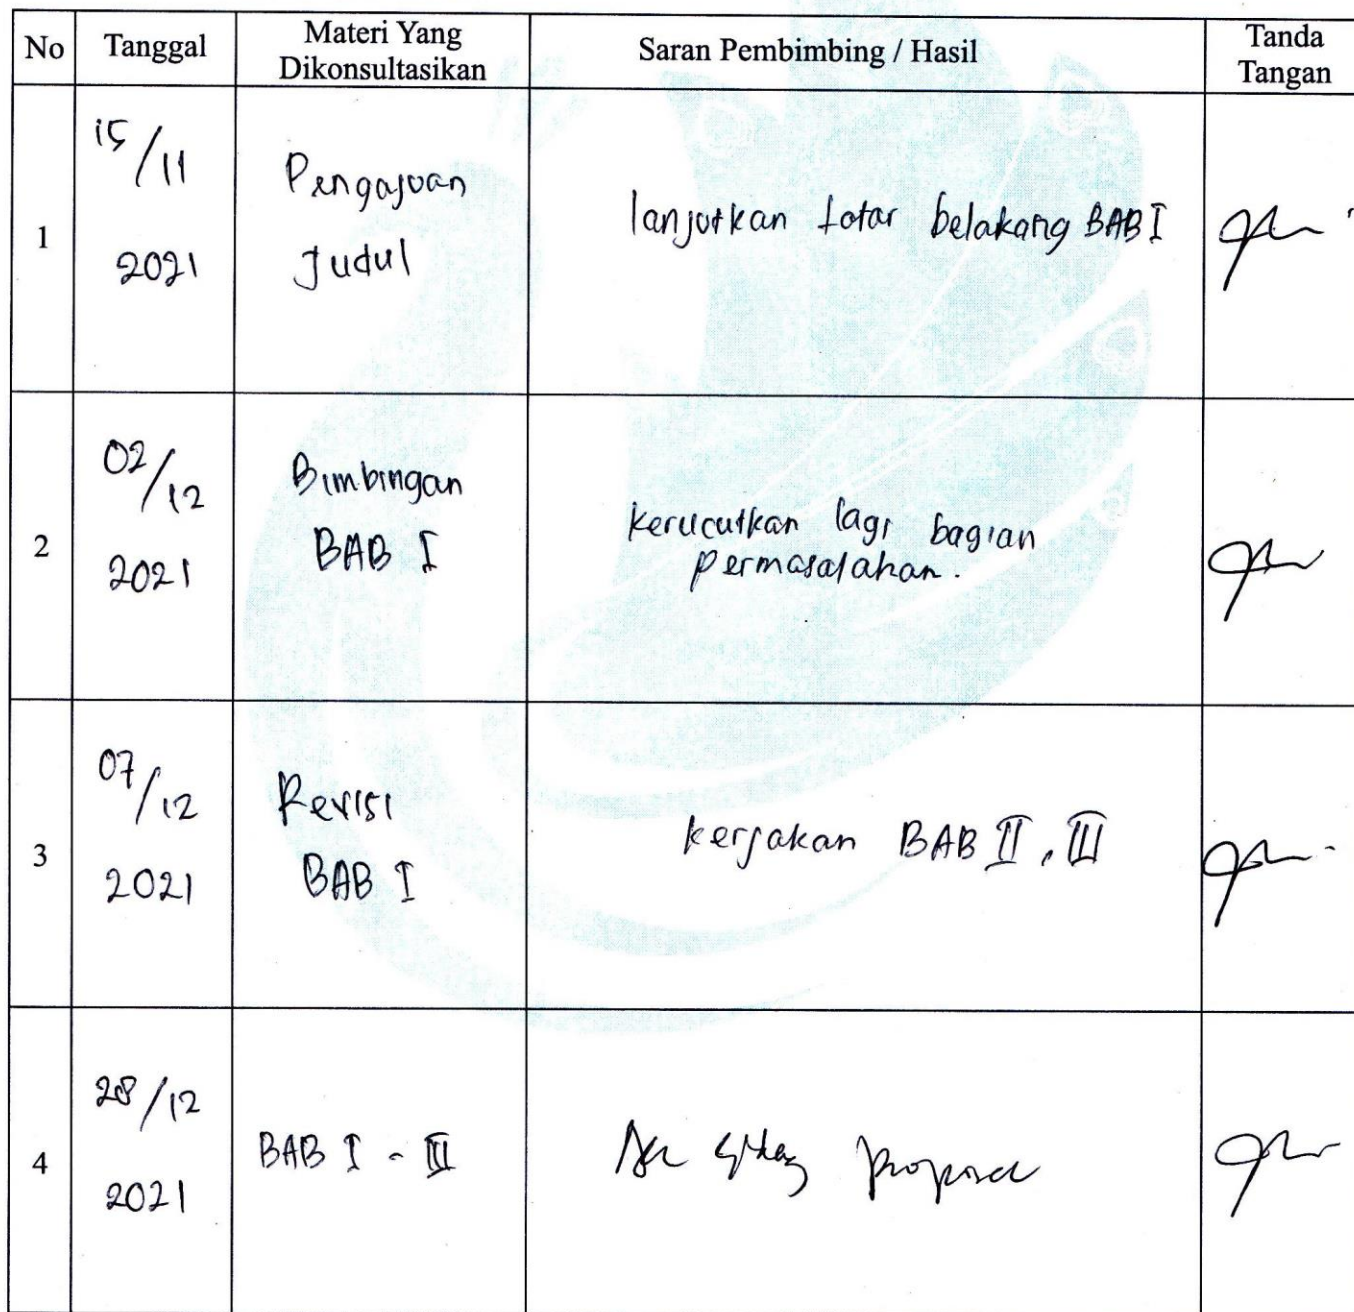 No
Tanggal
Materi Yang
Dikonsultasikan
Saran Pembimbing / Hasil
Tanda
Tangan
1
15/11
2021
Pengajuan
Judul
lanjutkan latar belakang BAB I
2
02/12
2021
Bimbingan
BAB I
Kerucutkan lagi bagian
permasalahan.
3
07/12
2021
Revisi
BAB I
kerjakan BAB II, III
4
28/12
2021
BAB I - III
Acc sidang proposal